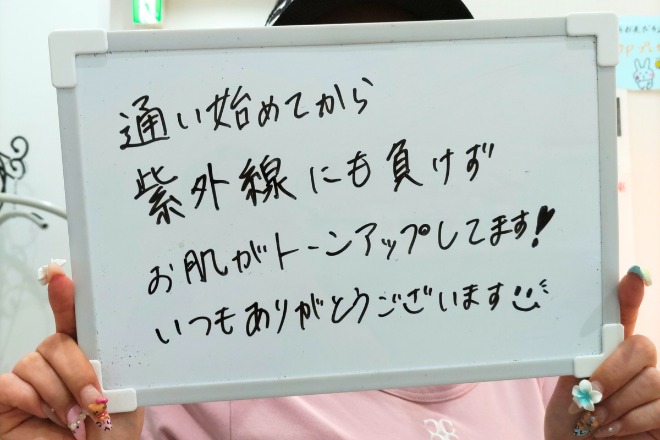 通い始めてから
紫外線にも負けず
お肌がトーンアップしてます!
いつもありがとうございます